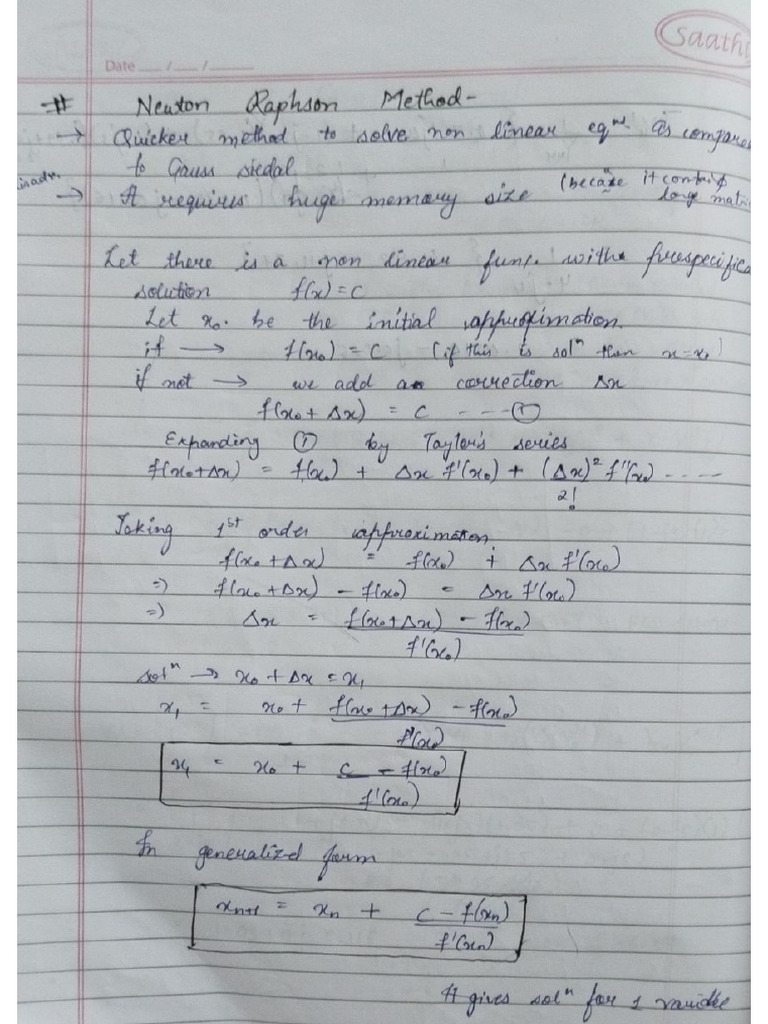 Saathi
Date ___/___/___
# Newton Raphson Method-
→ Quicker method to solve non linear eqⁿˢ. as compare
to Gauss siedal
disadv.
→ It requires huge memory size (because it contains
large matri
Let there is a non linear func. with prespecifica
solution f(x) = C
Let x₀. be the initial approximation.
if → f(x₀) = C (if this is solⁿ then x = x₀)
if not → we add a correction Δx
f(x₀ + Δx) = C ---- ①
Expanding ① by Taylor's series
f(x₀+Δx) = f(x₀) + Δx f'(x₀) + (Δx)² f''(x₀) .....
2!
Taking 1st order approximation
f(x₀ + Δx) = f(x₀) + Δx f'(x₀)
⇒ f(x₀ + Δx) - f(x₀) = Δx f'(x₀)
⇒ Δx = f(x₀+Δx) - f(x₀)
f'(x₀)
solⁿ → x₀ + Δx = x₁
x₁ = x₀ + f(x₀ + Δx) - f(x₀)
f'(x₀)
x₁ = x₀ + c - f(x₀)
f'(x₀)
In generalized form
xₙ₊₁ = xₙ + c - f(xₙ)
f'(xₙ)
It gives solⁿ for 1 variable